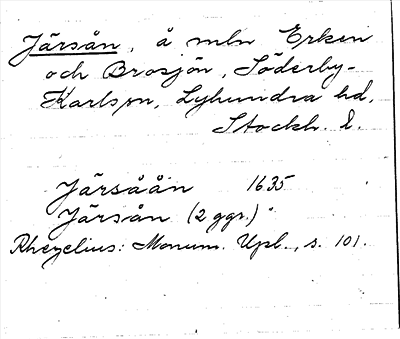 Järsån, å mln Erken
och Brosjön, Söderby-
Karls sn, Lyhundra hd,
Stockh. l.
Järsåån 1635
Järsån (2 ggr.)
Rhezelius: Monum. Upl., s. 101.